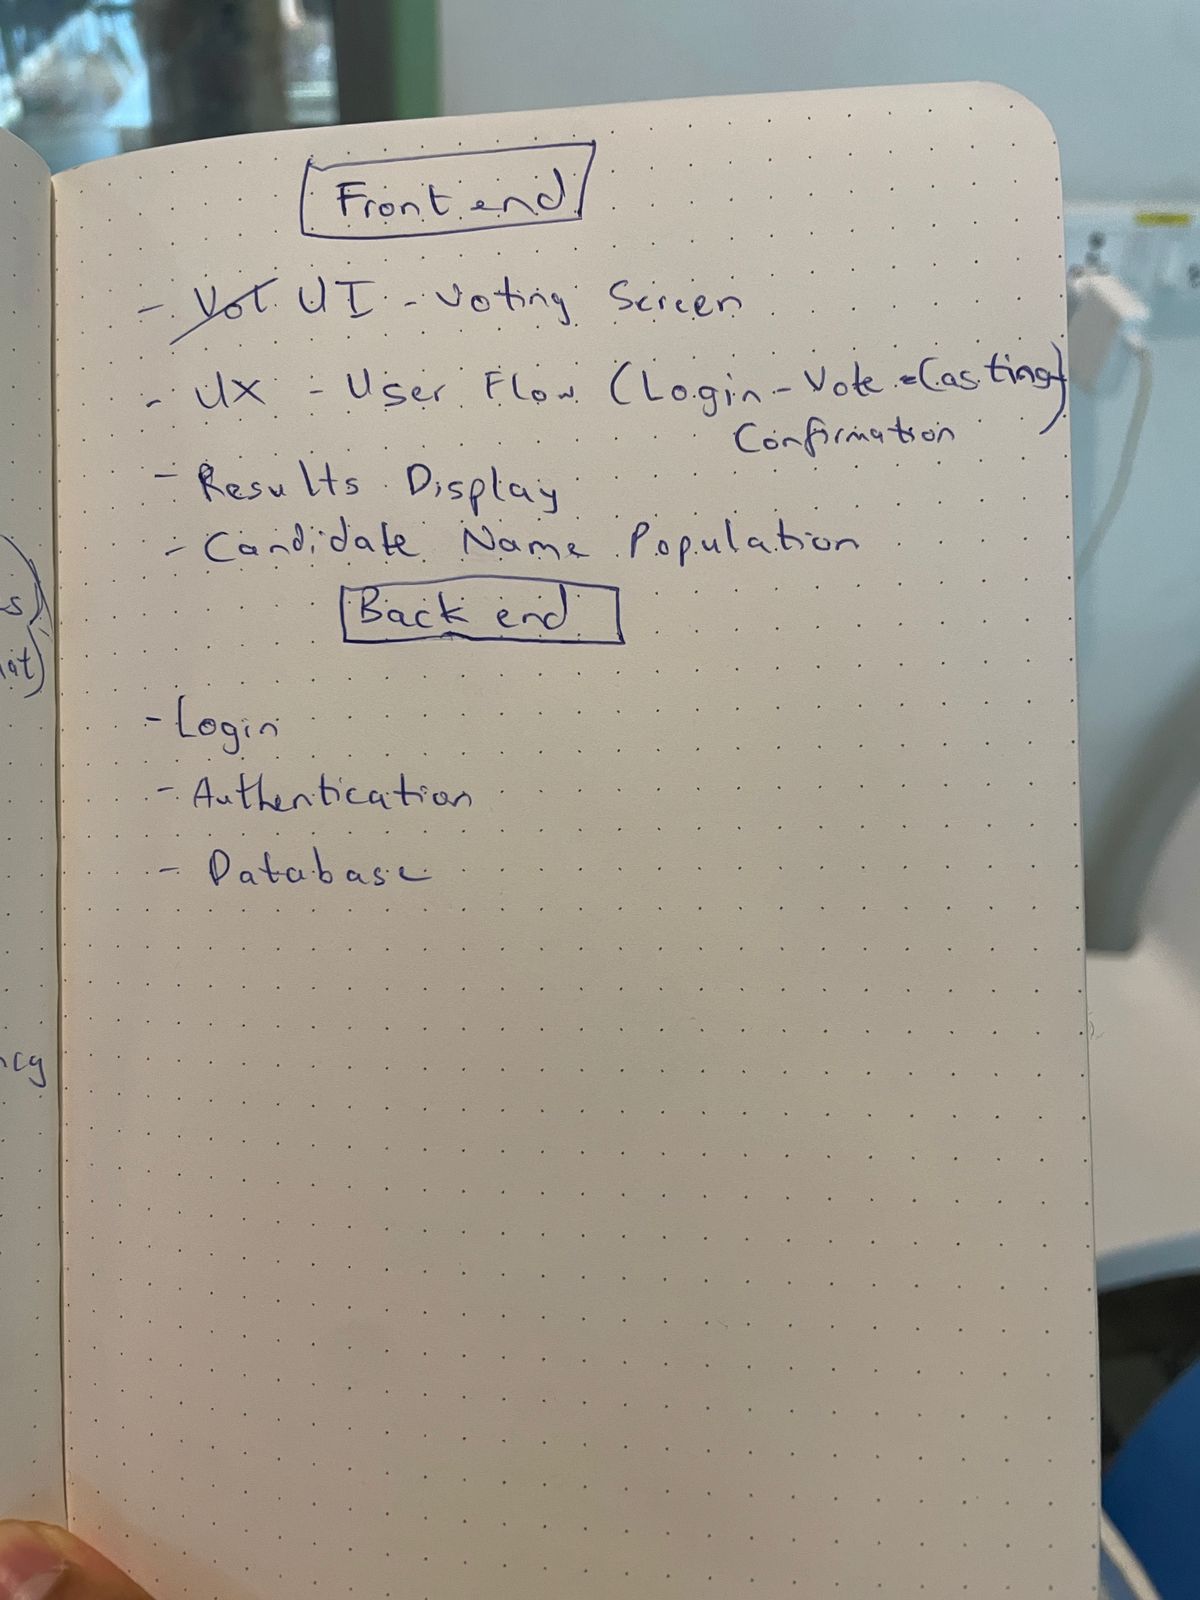 Front end
- Vot UI - Voting Screen
- UX - User Flow (Login - Vote - Casting)
Confirmation
- Results Display
- Candidate Name Population
Back end
- Login
- Authentication
- Database